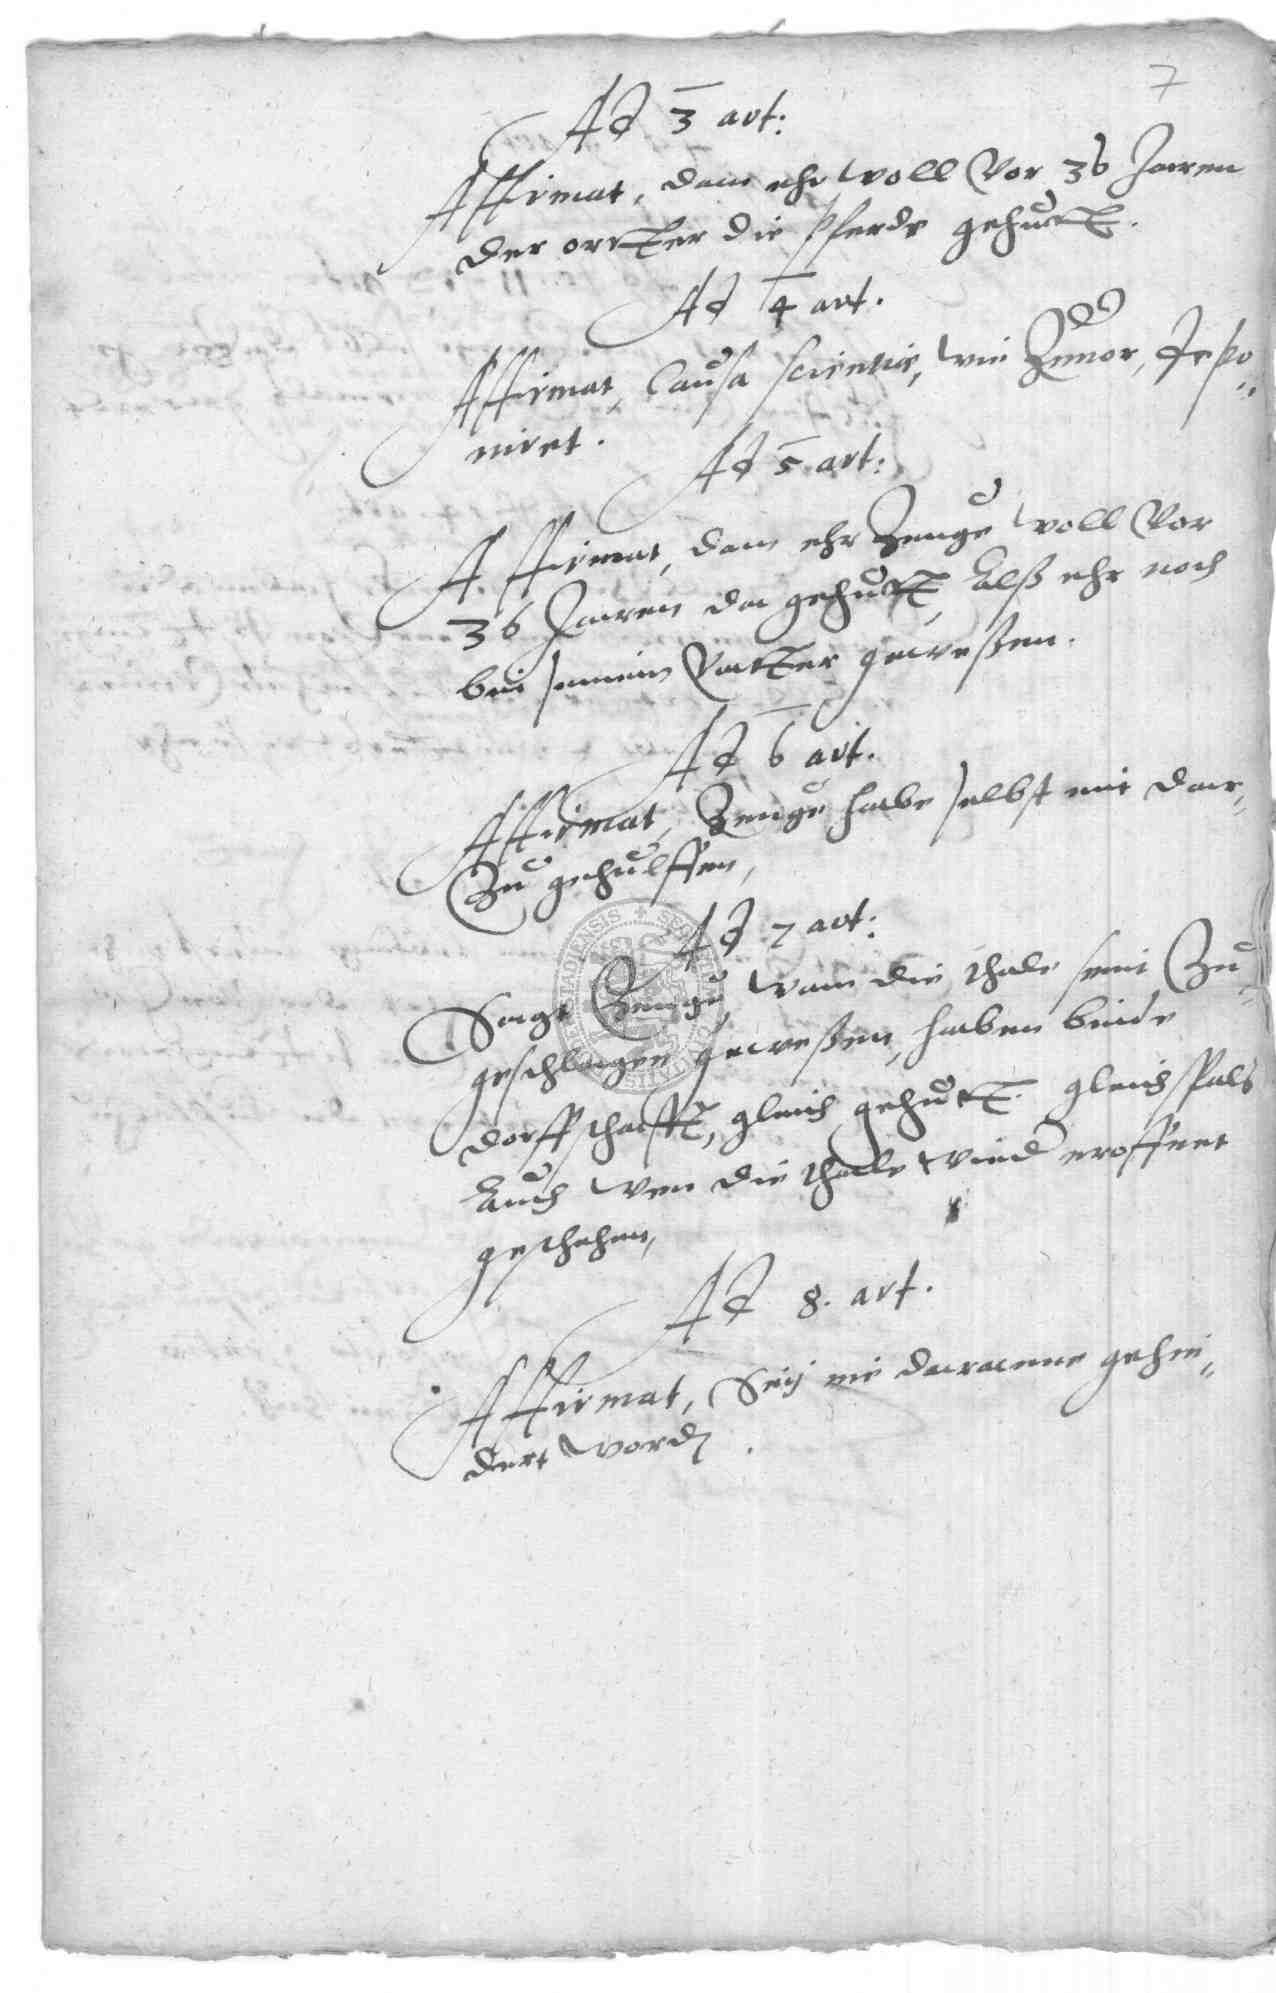 7
Ad 3 art:
Affirmat, dan ehr woll vor 36 Jaren
der ortter die Pferde gehutt.
Ad 4 art.
Affirmat, Causa scientiæ, wie Zuuor, depo„
niret.
Ad 5 art:
Affirmat, dan ehr Zeuge woll vor
36 Jaren da gehutt, Alß ehr noch
bei seinem Vatter gewesßen.
Ad 6 art.
Affirmat, Zeuge habe selbst mit dar„
Zu gehulffen,
Ad 7 art:
Sagt Zeuge, wan die thale seint Zu„
geschlagen gewesßen, haben beide
dorffschafft, gleich gehutt. gleichsfals
Auch wen die thale wied eroffnet
geschehen,
Ad 8. art.
Affirmat, Seij nie daranne gehin„
dert word.